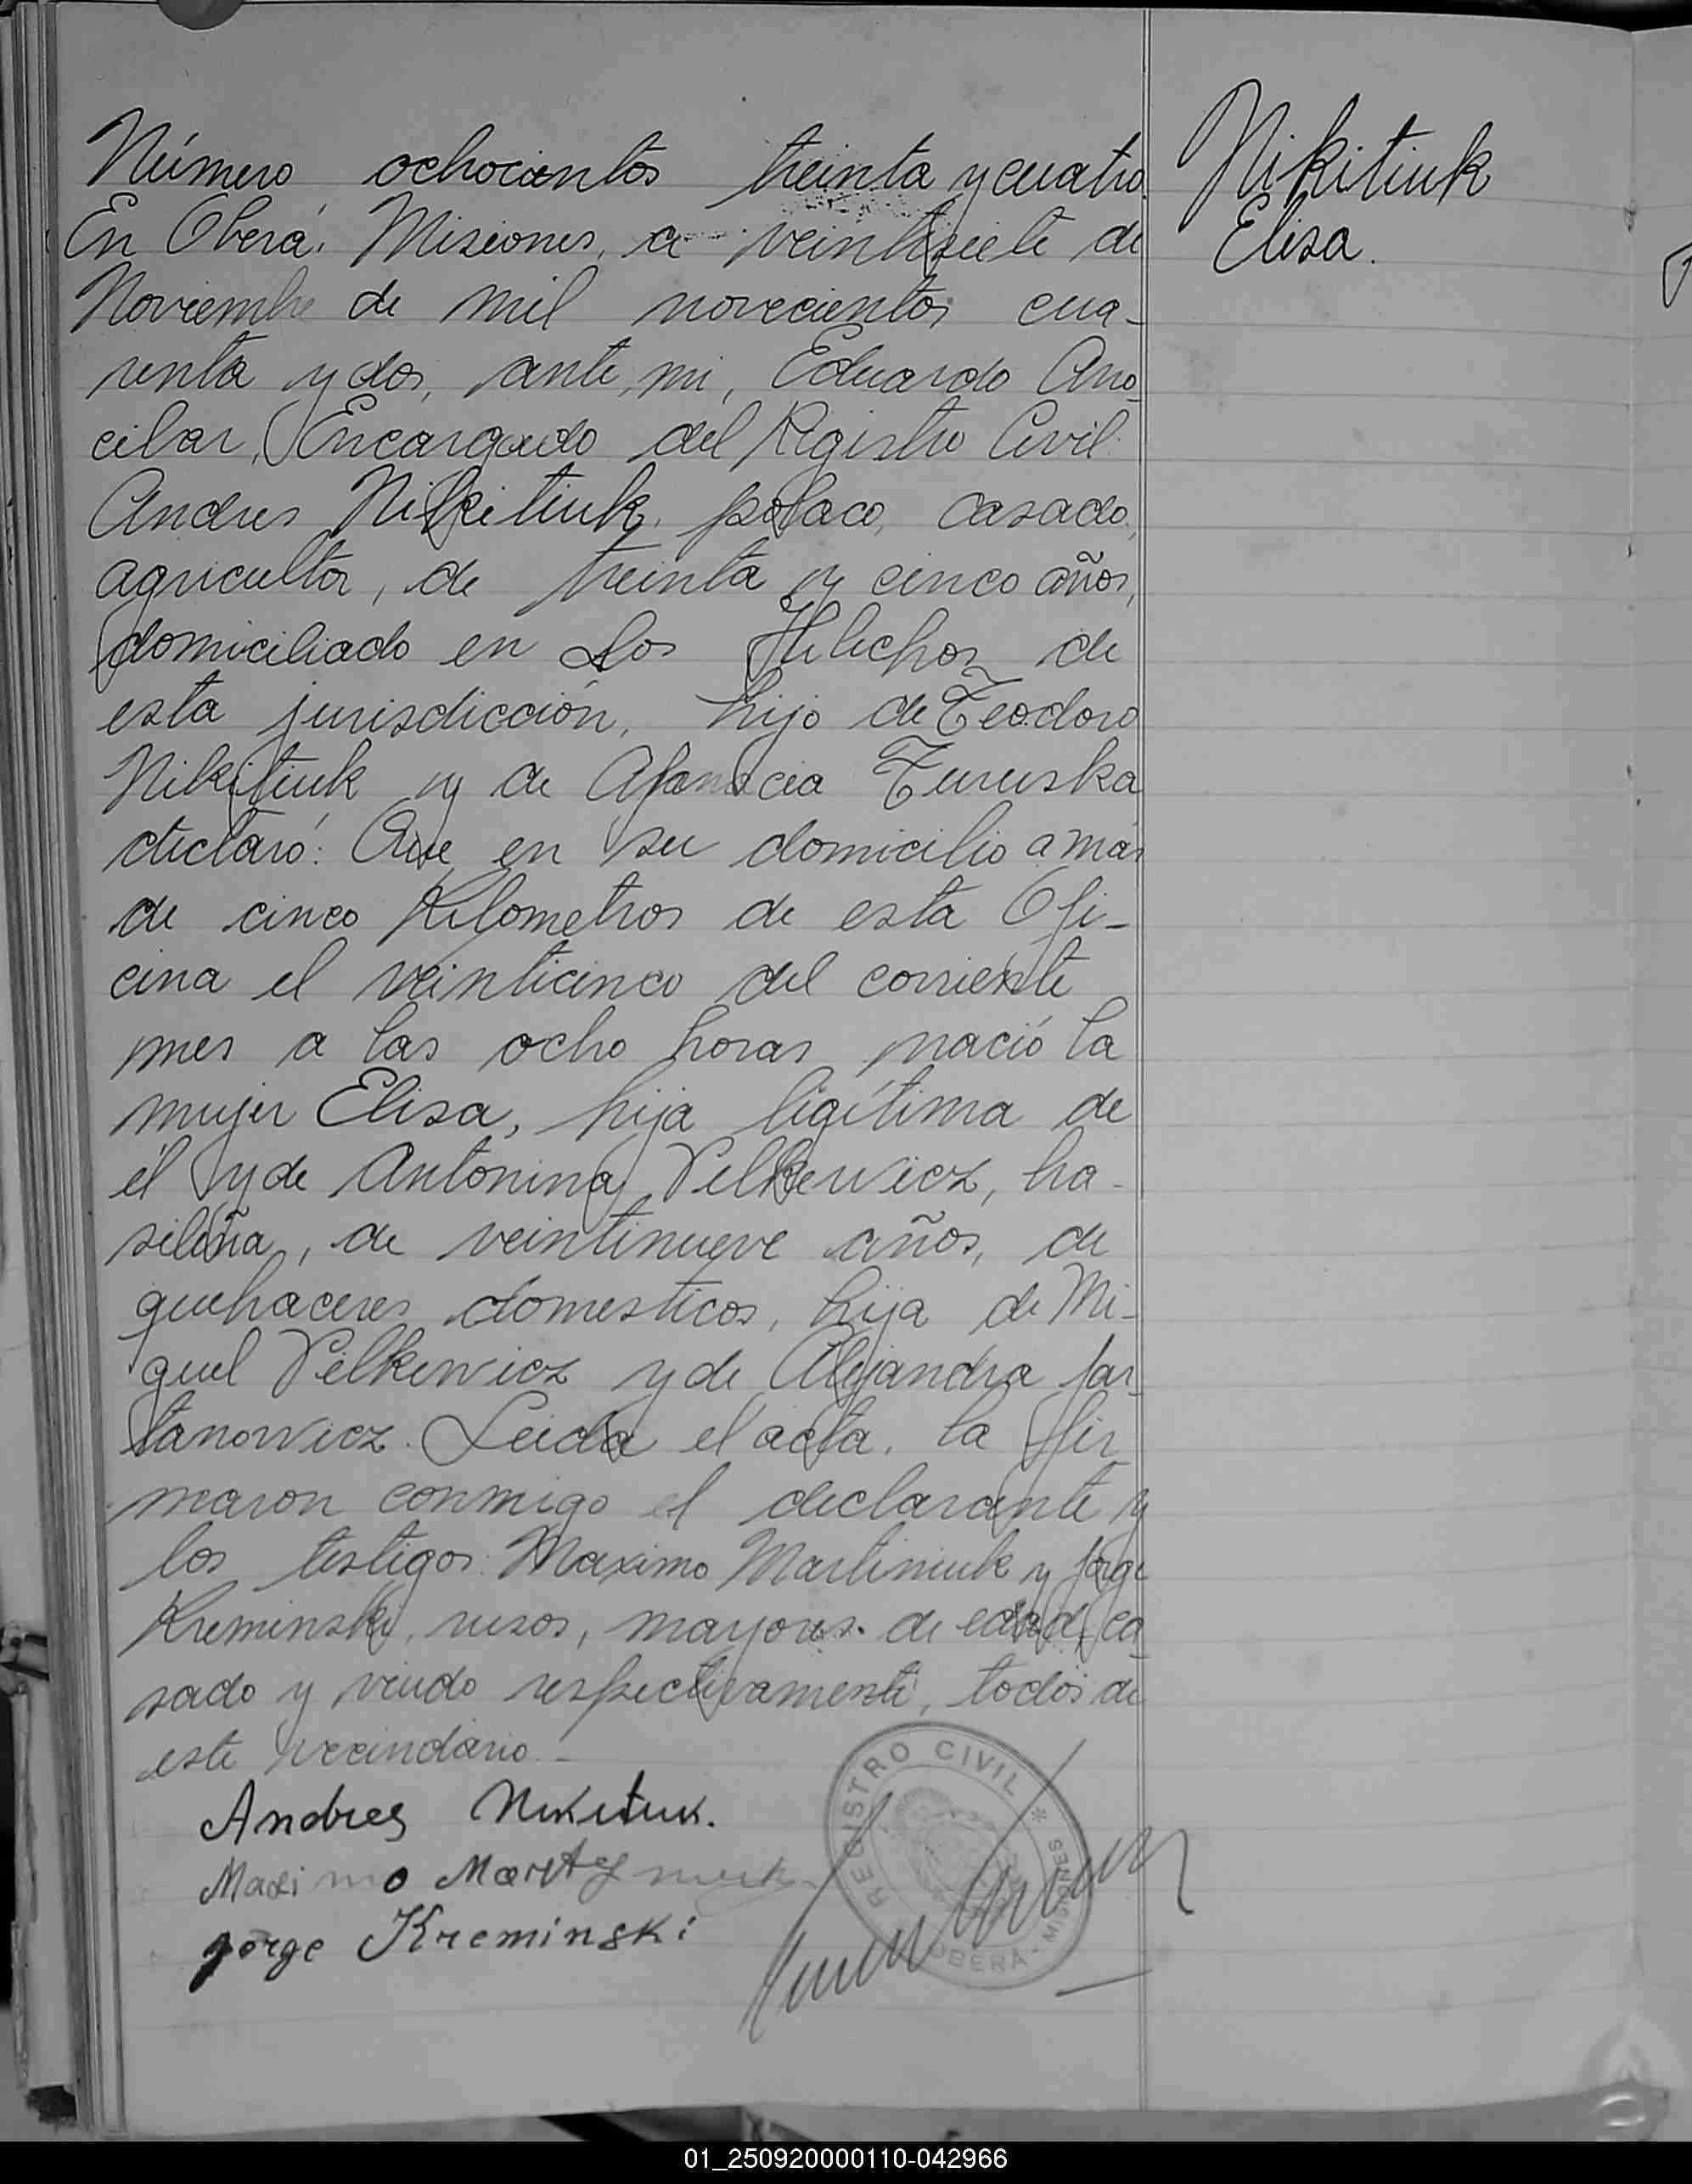 Número ochocientos treinta y cuatro
Nikitiuk
Elisa.
En Oberá, Misiones, a veintisiete de
Noviembre de mil novecientos cua-
renta y dos, ante mi, Eduardo Ano-
cibar, Encargado del Registro Civil
Andres Nikitiuk, polaco, casado,
agricultor, de treinta y cinco años,
domiciliado en Los Helechos de
esta jurisdicción, hijo de Teodoro
Nikitiuk y de Afanacia Turuska
declaró: Que en su domicilio a más
de cinco Kilometros de esta Ofi-
cina el veinticinco del corriente
mes a las ocho horas nació la
mujer Elisa, hija legítima de
él y de Antonina Pelkewicz, bra-
sileña, de veintinueve años, de
quehaceres domesticos, hija de Mi-
guel Pelkewicz y de Alejandra Jar-
tanowicz. Leida el acta, la fir
maron conmigo el declarante y
los testigos: Maximo Martiniuk y Jorge
Kreminski, rusos, mayores de edad, ca-
sado y viudo respectivamente, todos de
este vecindario.-
Andres Nikitiuk.
Maximo Martyniuk
Jorge Kreminski
REGISTRO CIVIL * OBERÁ - MISIONES
01_250920000110-042966